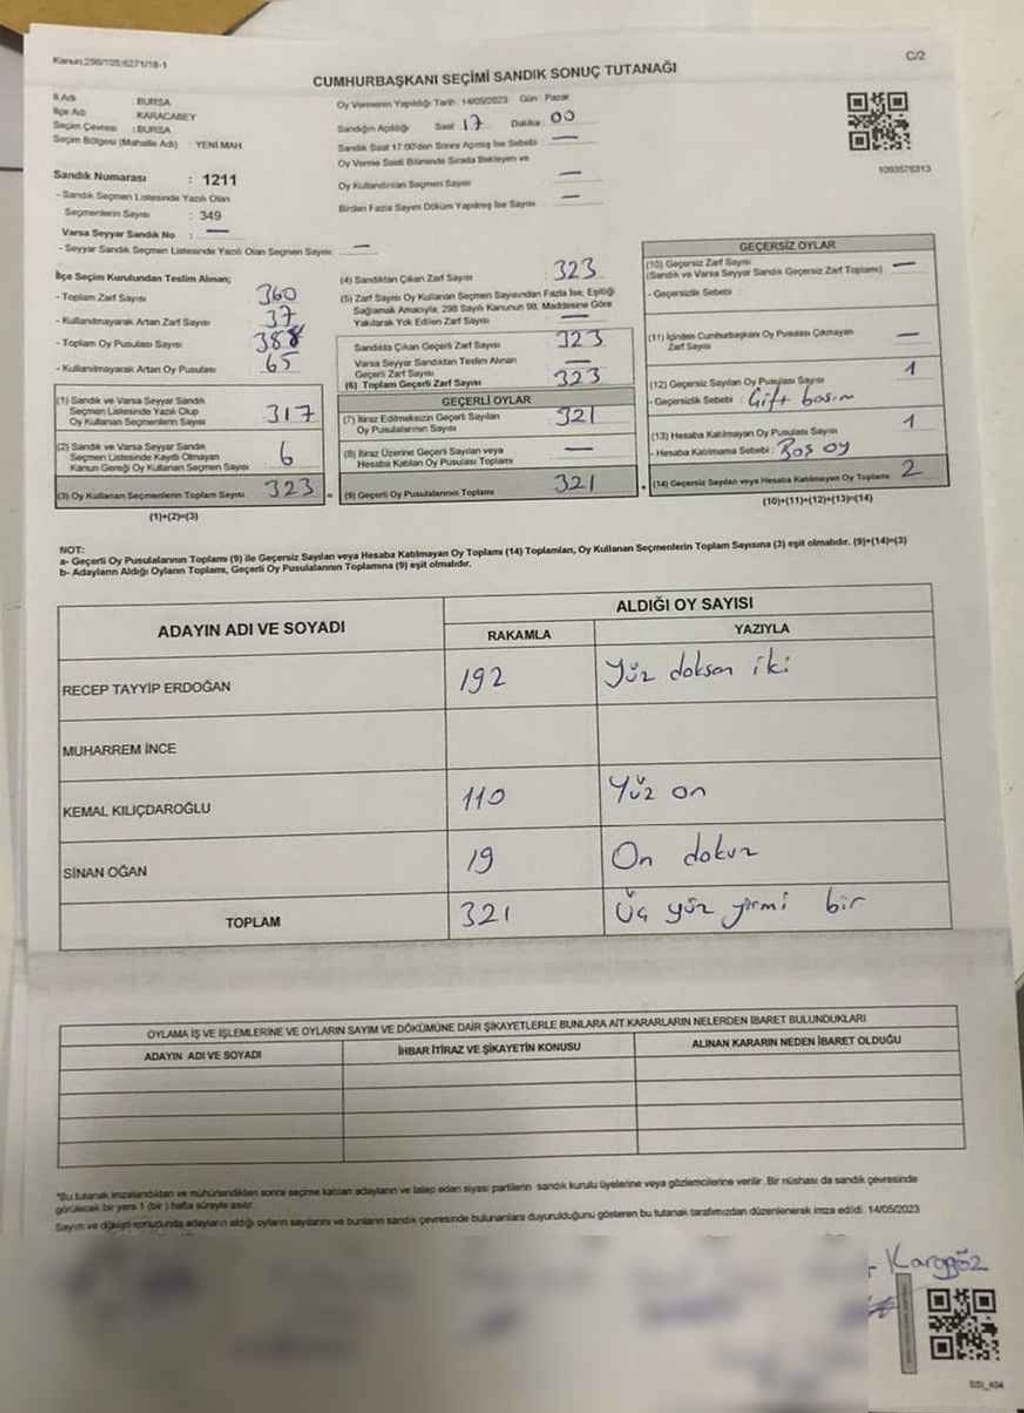 Kanun:298/105;6271/18-1
C/2
CUMHURBAŞKANI SEÇİMİ SANDIK SONUÇ TUTANAĞI
İl Adı : BURSA
İlçe Adı : KARACABEY
Seçim Çevresi : BURSA
Seçim Bölgesi (Mahalle Adı) YENİ MAH.
Sandık Numarası : 1211
- Sandık Seçmen Listesinde Yazılı Olan
Seçmenlerin Sayısı : 349
Varsa Seyyar Sandık No : —
- Seyyar Sandık Seçmen Listesinde Yazılı Olan Seçmen Sayısı: —
Oy Vermenin Yapıldığı Tarih: 14/05/2023 Gün: Pazar
Sandığın Açıldığı Saat: 17 Dakika: 00
Sandık Saat 17:00'den Sonra Açılmış İse Sebebi —
Oy Verme Saati Bitiminde Sırada Bekleyen ve
Oy Kullandırılan Seçmen Sayısı —
Birden Fazla Sayım Döküm Yapılmış İse Sayısı —
İlçe Seçim Kurulundan Teslim Alınan;
- Toplam Zarf Sayısı 360
- Kullanılmayarak Artan Zarf Sayısı 37
- Toplam Oy Pusulası Sayısı 388
- Kullanılmayarak Artan Oy Pusulası 65
(1) Sandık ve Varsa Seyyar Sandık
Seçmen Listesinde Yazılı Olup
Oy Kullanan Seçmenlerin Sayısı 317
(2) Sandık ve Varsa Seyyar Sandık
Seçmen Listesinde Kayıtlı Olmayan
Kanun Gereği Oy Kullanan Seçmen Sayısı 6
(3) Oy Kullanan Seçmenlerin Toplam Sayısı 323
=
(1)+(2)=(3)
(4) Sandıktan Çıkan Zarf Sayısı 323
(5) Zarf Sayısı Oy Kullanan Seçmen Sayısından Fazla İse, Eşitliği
Sağlamak Amacıyla, 298 Sayılı Kanunun 98. Maddesine Göre
Yakılarak Yok Edilen Zarf Sayısı —
Sandıkta Çıkan Geçerli Zarf Sayısı 323
Varsa Seyyar Sandıktan Teslim Alınan
Geçerli Zarf Sayısı —
(6) Toplam Geçerli Zarf Sayısı 323
GEÇERLİ OYLAR
(7) İtiraz Edilmeksizin Geçerli Sayılan
Oy Pusulalarının Sayısı 321
(8) İtiraz Üzerine Geçerli Sayılan veya
Hesaba Katılan Oy Pusulası Toplamı —
(9) Geçerli Oy Pusulalarının Toplamı 321
GEÇERSİZ OYLAR
(10) Geçersiz Zarf Sayısı
(Sandık ve Varsa Seyyar Sandık Geçersiz Zarf Toplamı) —
- Geçersizlik Sebebi :
(11) İçinden Cumhurbaşkanı Oy Pusulası Çıkmayan
Zarf Sayısı —
(12) Geçersiz Sayılan Oy Pusulası Sayısı 1
- Geçersizlik Sebebi : Çift basım
(13) Hesaba Katılmayan Oy Pusulası Sayısı 1
- Hesaba Katılmama Sebebi : Boş oy
(14) Geçersiz Sayılan veya Hesaba Katılmayan Oy Toplamı 2
(10)+(11)+(12)+(13)=(14)
NOT:
a- Geçerli Oy Pusulalarının Toplamı (9) ile Geçersiz Sayılan veya Hesaba Katılmayan Oy Toplamı (14) Toplamları, Oy Kullanan Seçmenlerin Toplam Sayısına (3) eşit olmalıdır. (9)+(14)=(3)
b- Adayların Aldığı Oyların Toplamı, Geçerli Oy Pusulalarının Toplamına (9) eşit olmalıdır.
ADAYIN ADI VE SOYADI
ALDIĞI OY SAYISI
RAKAMLA YAZIYLA
RECEP TAYYİP ERDOĞAN 192 Yüz doksan iki
MUHARREM İNCE
KEMAL KILIÇDAROĞLU 110 Yüz on
SİNAN OĞAN 19 On dokuz
TOPLAM 321 Üç yüz yirmi bir
OYLAMA İŞ VE İŞLEMLERİNE VE OYLARIN SAYIM VE DÖKÜMÜNE DAİR ŞİKAYETLERLE BUNLARA AİT KARARLARIN NELERDEN İBARET BULUNDUKLARI
ADAYIN ADI VE SOYADI İHBAR İTİRAZ VE ŞİKAYETİN KONUSU ALINAN KARARIN NEDEN İBARET OLDUĞU
*Bu tutanak imzalandıktan ve mühürlendikten sonra seçime katılan adayların ve talep eden siyasi partilerin sandık kurulu üyelerine veya gözlemcilerine verilir. Bir nüshası da sandık çevresinde
görülecek bir yere 1 (bir) hafta süreyle asılır.
Sayım ve döküm sonucunda adayların aldığı oyların sayılarını ve bunların sandık çevresinde bulunanlara duyurulduğunu gösteren bu tutanak tarafımızdan düzenlenerek imza edildi. 14/05/2023
Karagöz